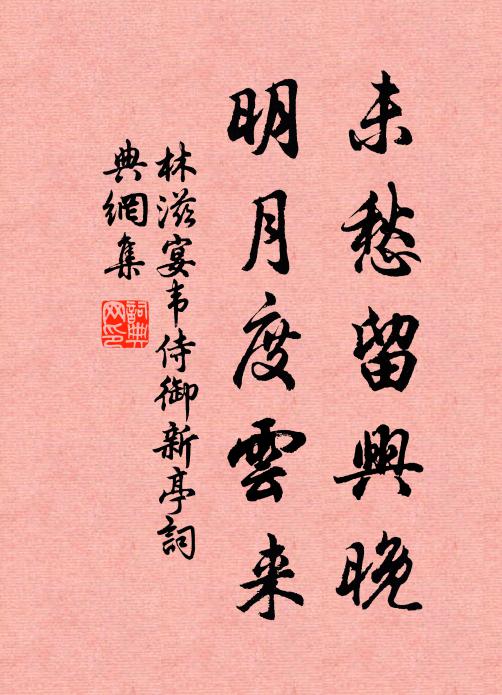 未愁留興晚
明月度雲来
林滋宴韦侍御新亭詞
典網集
詞典
网印